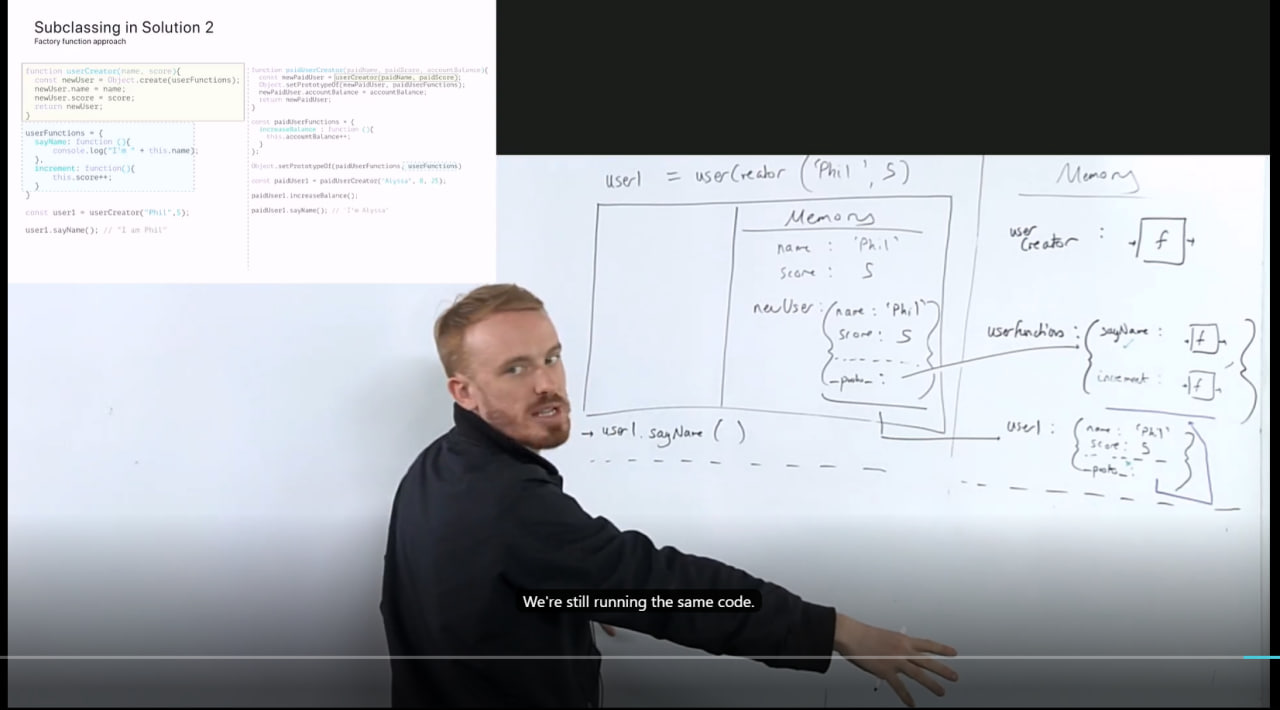 Subclassing in Solution 2
Factory function approach
function userCreator(name, score){
const newUser = Object.create(userFunctions);
newUser.name = name;
newUser.score = score;
return newUser;
}
userFunctions = {
sayName: function (){
console.log("I'm " + this.name);
},
increment: function(){
this.score++;
}
}
const user1 = userCreator("Phil",5);
user1.sayName(); // "I am Phil"
function paidUserCreator(paidName, paidScore, accountBalance){
const newPaidUser = userCreator(paidName, paidScore);
Object.setPrototypeOf(newPaidUser, paidUserFunctions);
newPaidUser.accountBalance = accountBalance;
return newPaidUser;
}
const paidUserFunctions = {
increaseBalance : function (){
this.accountBalance++;
}
};
Object.setPrototypeOf(paidUserFunctions, userFunctions)
const paidUser1 = paidUserCreator("Alyssa", 8, 25);
paidUser1.increaseBalance();
paidUser1.sayName(); // "I'm Alyssa"
user1 = userCreator ('Phil', 5)
Memory
name : 'Phil'
score : 5
newUser : { name : 'Phil'
score : 5
_proto_ :
}
→ user1.sayName ( )
Memory
user
Creator : f
userfunctions : { sayName : f
increment : f }
user1 : { name : 'Phil'
score : 5
_proto_ : }
We're still running the same code.